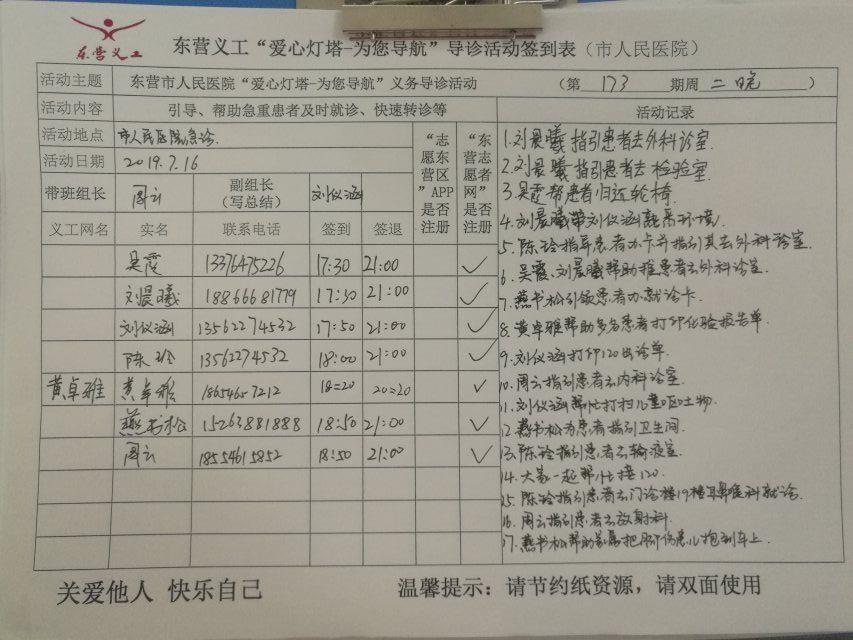 东营义工
东营义工“爱心灯塔-为您导航”导诊活动签到表（市人民医院）
活动主题 东营市人民医院“爱心灯塔-为您导航”义务导诊活动 （第 173 期周 二晚 ）
活动内容 引导、帮助急重患者及时就诊、快速转诊等 活动记录
活动地点 市人民医院急诊
活动日期 2019.7.16
带班组长 周云 副组长（写总结） 刘仪涵
“志愿东营区”APP是否注册
“东营志愿者网”是否注册
义工网名 实名 联系电话 签到 签退
吴霞 13376475226 17:30 21:00 ✓
刘晨曦 18866681779 17:30 21:00 ✓
刘仪涵 13562274532 17:50 21:00 ✓
陈玲 13562274532 18:00 21:00 ✓
黄卓雅 黄卓雅 18654657212 18=20 20=20 ✓
燕书松 15263881888 18:50 21:00 ✓
周云 18554615852 18:50 21:00 ✓
1.刘晨曦指引患者去外科诊室.
2.刘晨曦指引患者去检验室.
3.吴霞帮患者归还轮椅.
4.刘晨曦带刘仪涵熟悉环境.
5.陈玲指导患者办卡并指引其去外科诊室.
6.吴霞、刘晨曦帮助推患者去外科诊室.
7.燕书松引领患者办就诊卡.
8.黄卓雅帮助多名患者打印化验报告单.
9.刘仪涵打印120出诊单.
10.周云指引患者去内科诊室.
11.刘仪涵帮忙打扫儿童呕吐物.
12.燕书松为患者指引卫生间.
13.陈玲指引患者去输液室.
14.大家一起帮忙接120.
15.陈玲指引患者去门诊楼19楼耳鼻喉科就诊.
16.周云指引患者去放射科.
17.燕书松帮助家属把脚伤患儿抱到车上.
关爱他人 快乐自己
温馨提示：请节约纸资源，请双面使用